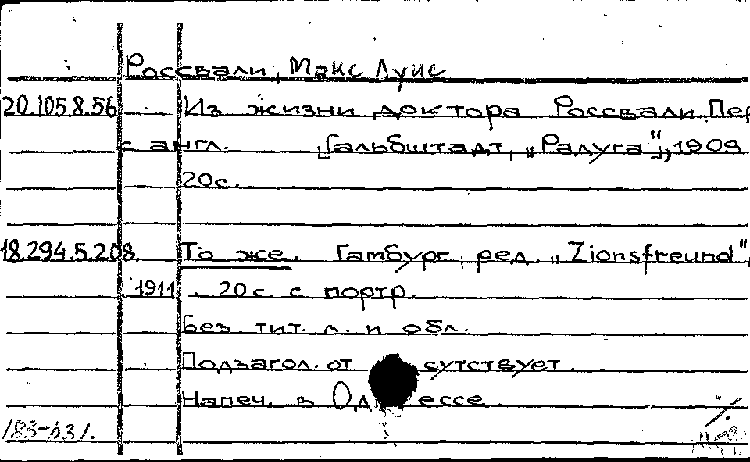 Россвали, Макс Луис
20.105.8.56 Из жизни доктора Россвали. Пер
с англ. [Гальбштадт, „Радуга"], 1909
20с.
18.294.5.208 То же. Гамбург, ред. „Zionsfreund",
1911. 20с. с портр.
Без тит. л. и обл.
Подзагол. отсутствует.
Напеч. в Одессе.